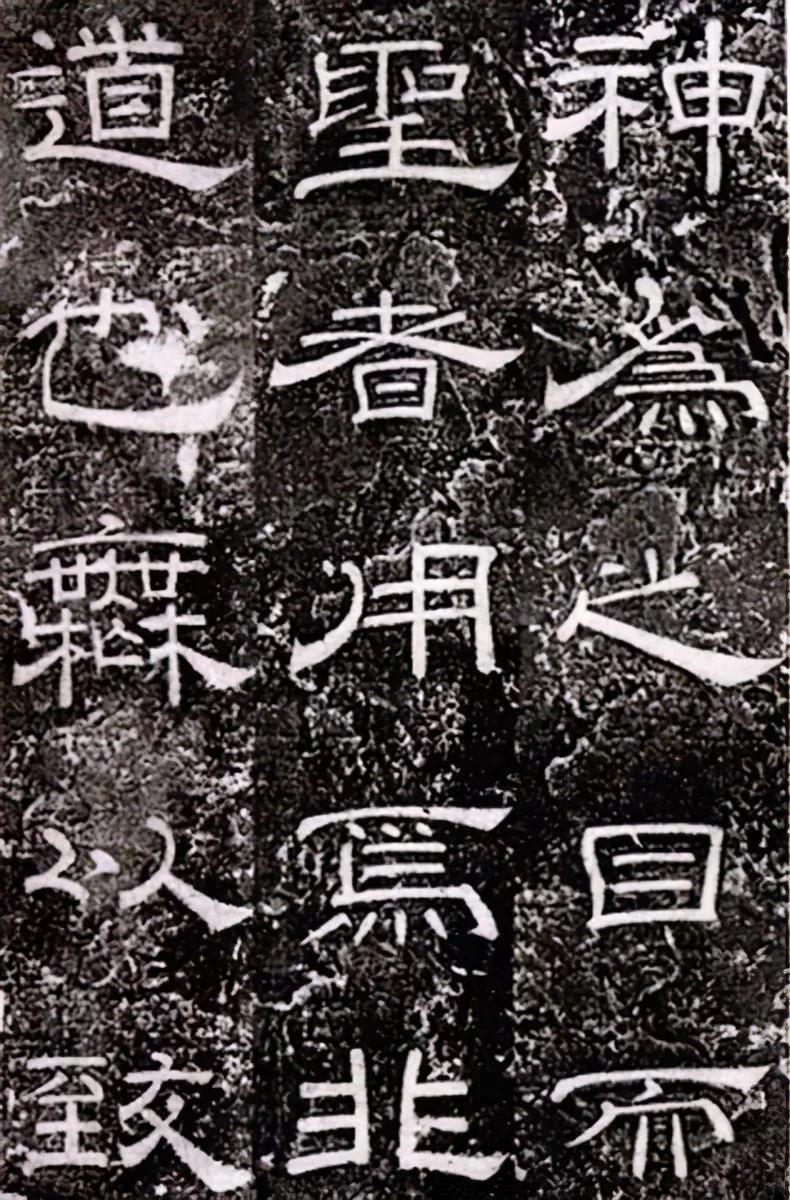 神爲之目而
聖者用焉非
道也無以致